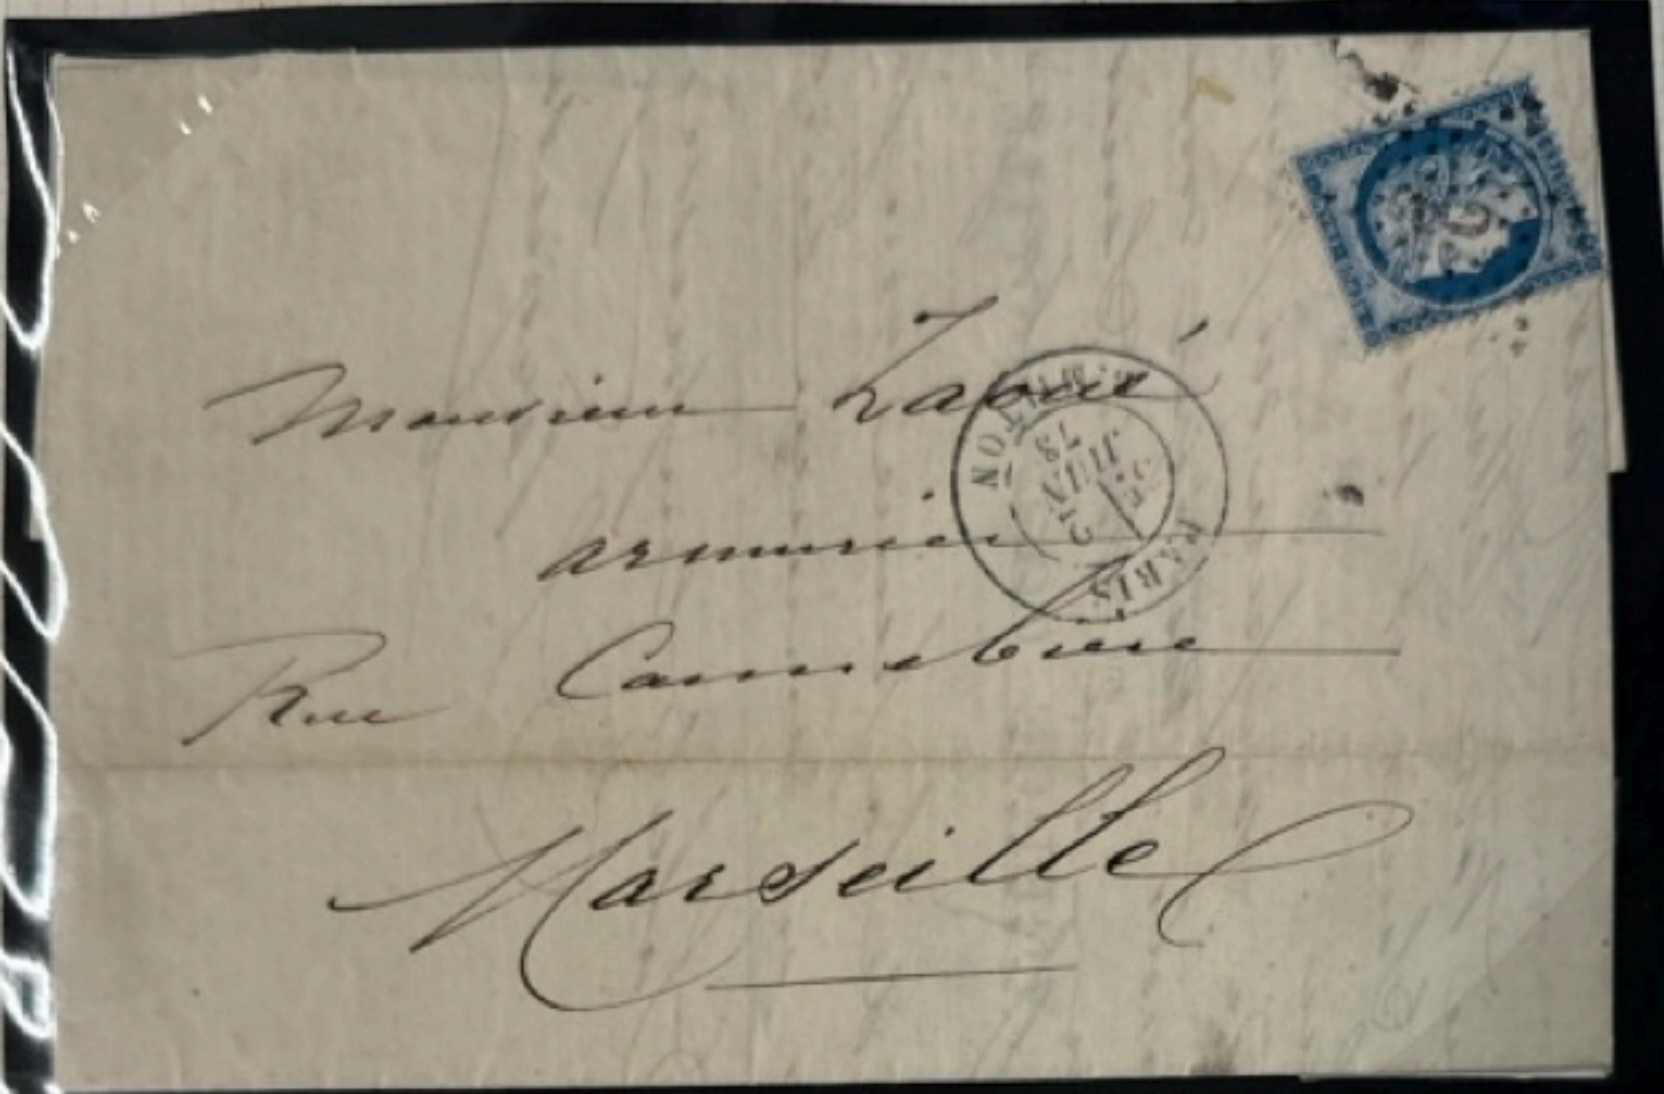 Monsieur Zaoué
armurier
Rue Cannebiere
Marseille
PARIS
JUIN
73